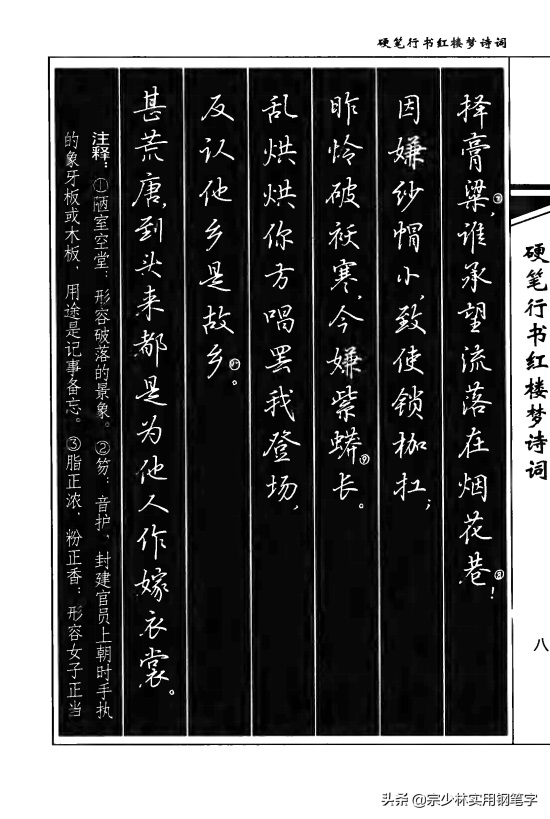 硬笔行书红楼梦诗词
硬笔行书红楼梦诗词
八
择膏粱⑦,谁承望流落在烟花巷⑧!
因嫌纱帽小,致使锁枷扛;
昨怜破袄寒,今嫌紫蟒⑨长。
乱烘烘你方唱罢我登场,
反认他乡是故乡⑩。
甚荒唐,到头来都是为他人作嫁衣裳。
注释:①陋室空堂:形容破落的景象。②笏:音护,封建官员上朝时手执
的象牙板或木板,用途是记事备忘。③脂正浓,粉正香:形容女子正当
头条 @宗少林实用钢笔字